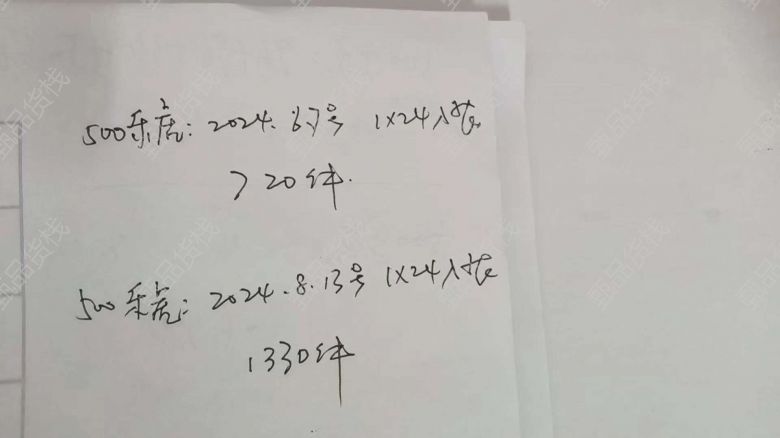 500乐虎: 2024.6.7号 1X24入装
720件.
500乐虎: 2024.8.13号 1X24入装
1330件